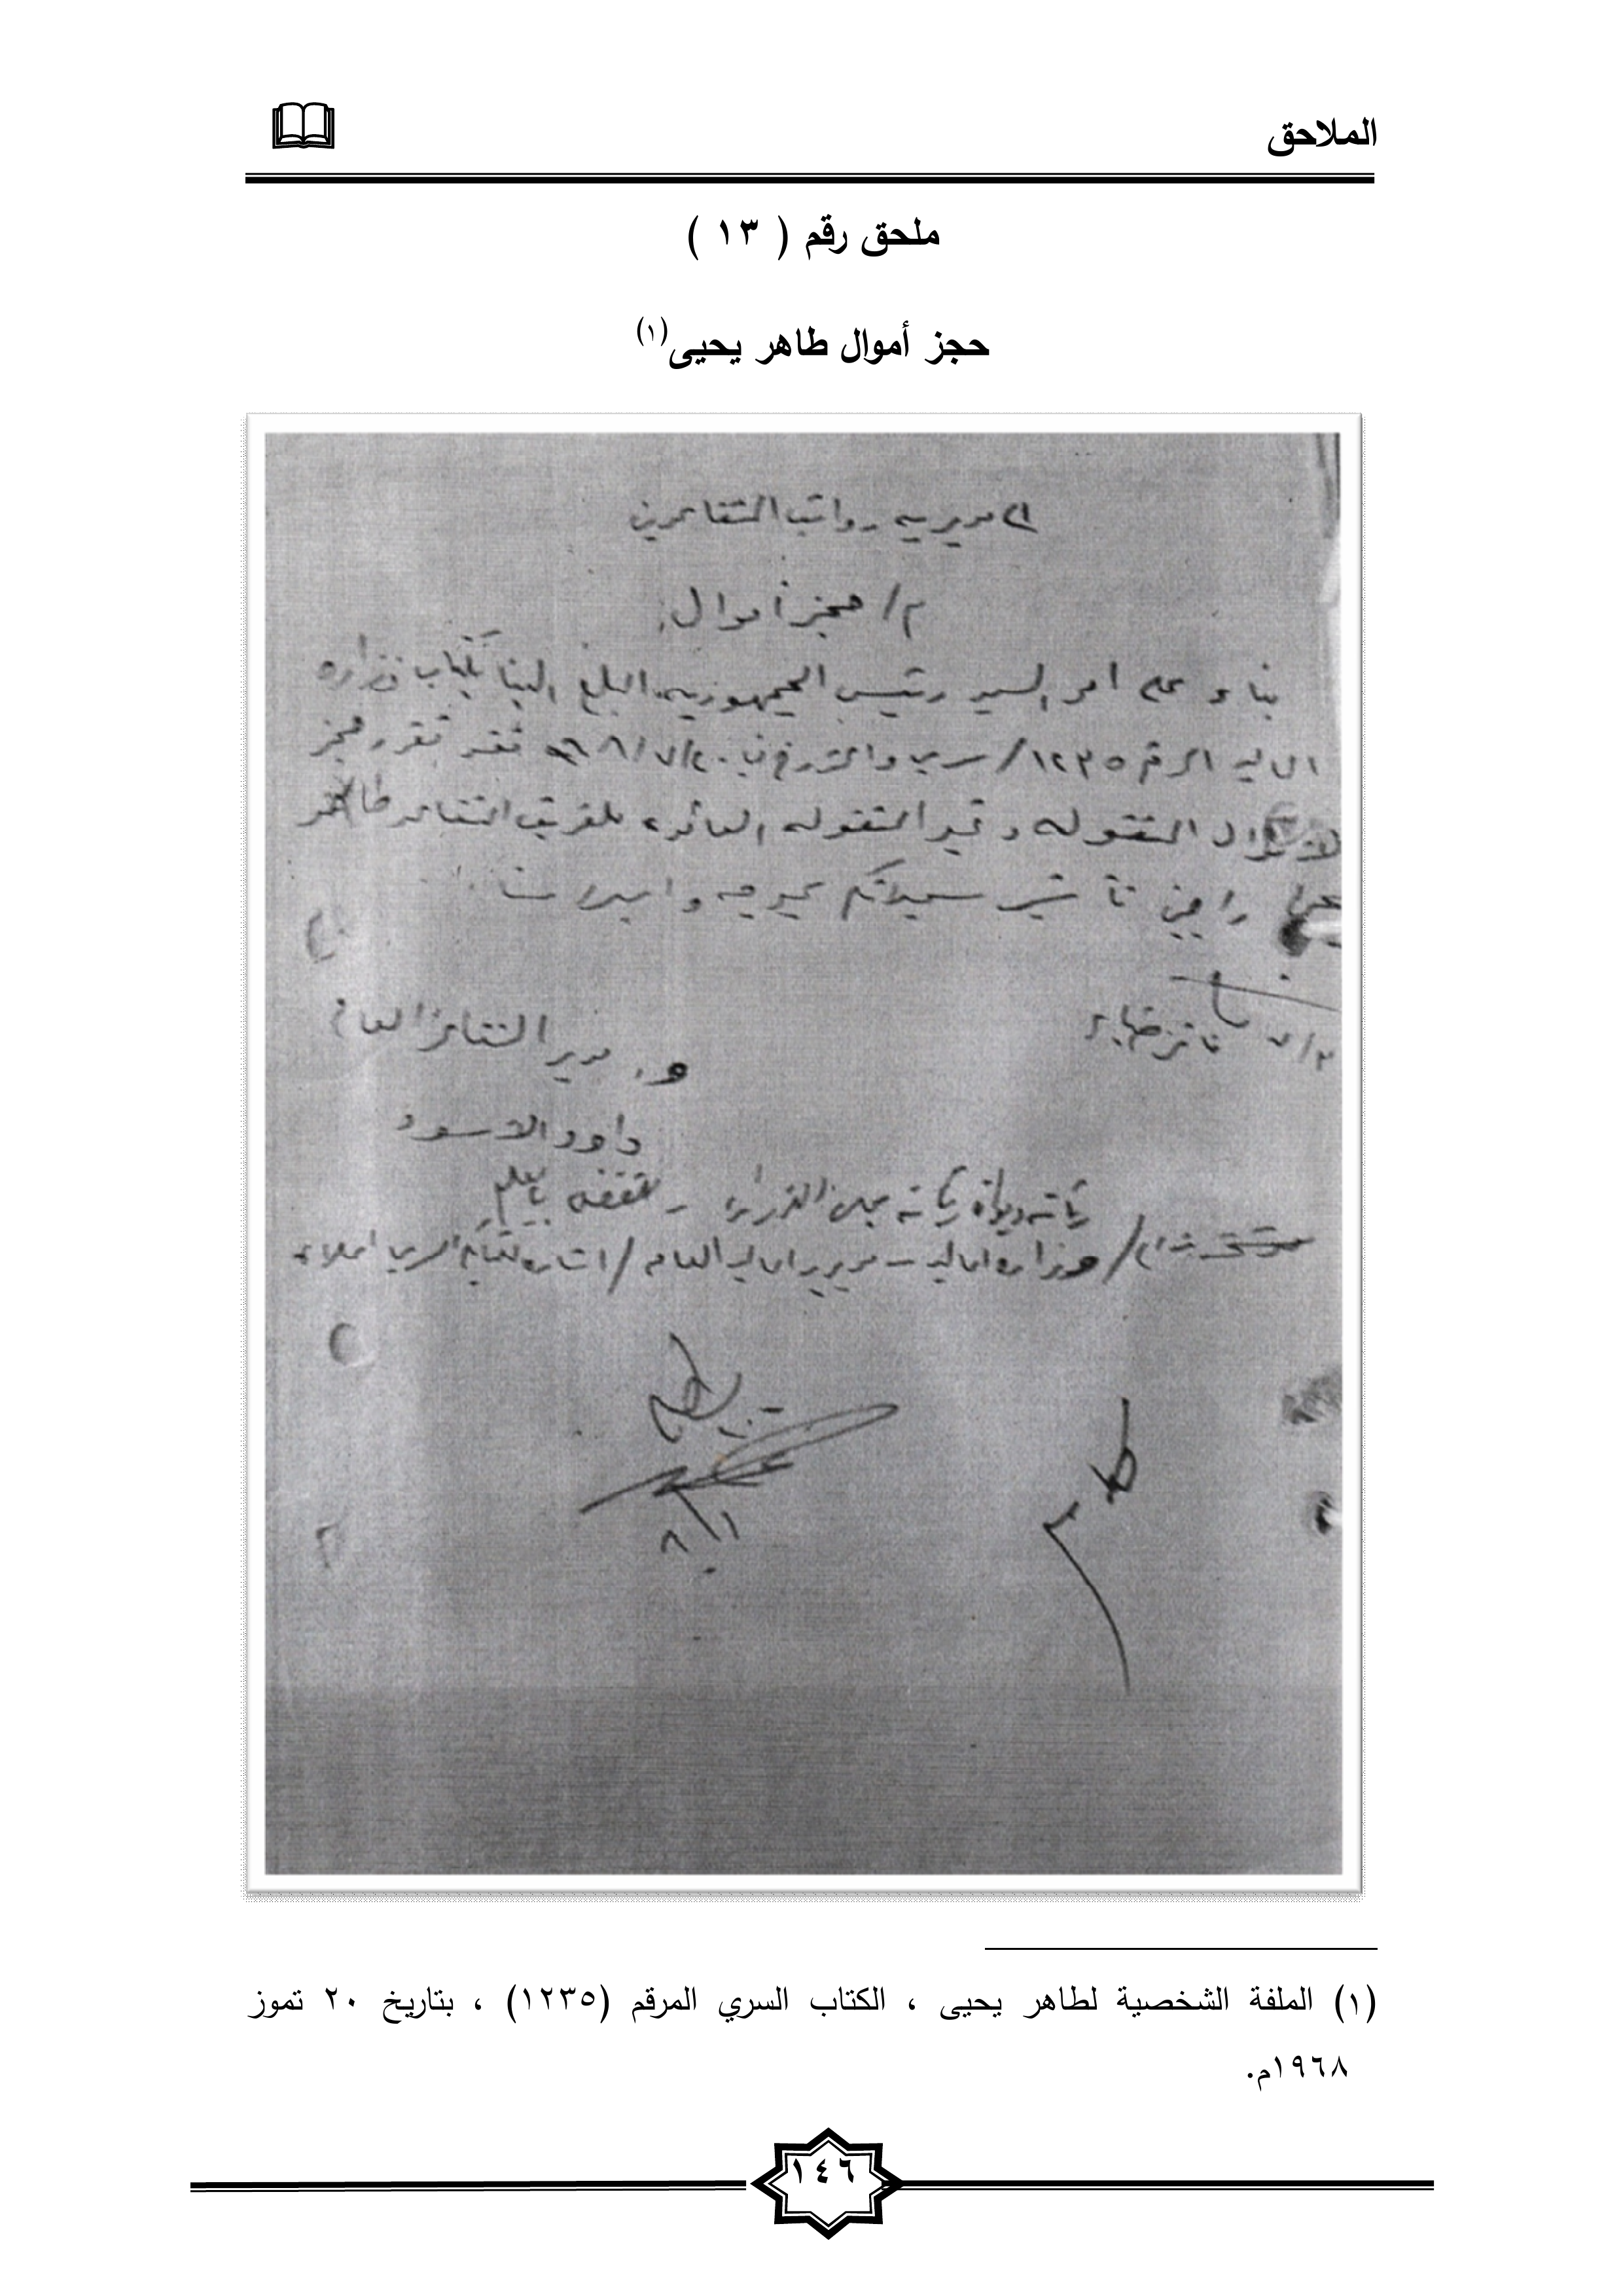 الملاحق
ملحق رقم ( ١٣ )
حجز أموال طاهر يحيى(١)
الى مديريه رواتب المتقاعدين
م/ حجز أموال
بناء على امر السيد رئيس الجمهوريه المبلغ الينا بكتاب وزاره
الماليه المرقم ١٢٣٥/سري والمؤرخ في ٢٠/٧/٩٦٨ فقد تقرر حجز
الاموال المنقوله وغير المنقوله العائده للفريق المتقاعد طاهر
يحيى راجين تأشير سجلاتكم بموجبه
مدير التقاعد العام
داود الاسود
رئاسة ديوان رئاسة مجلس الوزراء - للتفضل بالعلم
وزاره الماليه - مديريه الماليه العامه / اشاره لكتابكم السري اعلاه
٨/١
(١) الملفة الشخصية لطاهر يحيى ، الكتاب السري المرقم (١٢٣٥) ، بتاريخ ٢٠ تموز
١٩٦٨م.
١٤٦